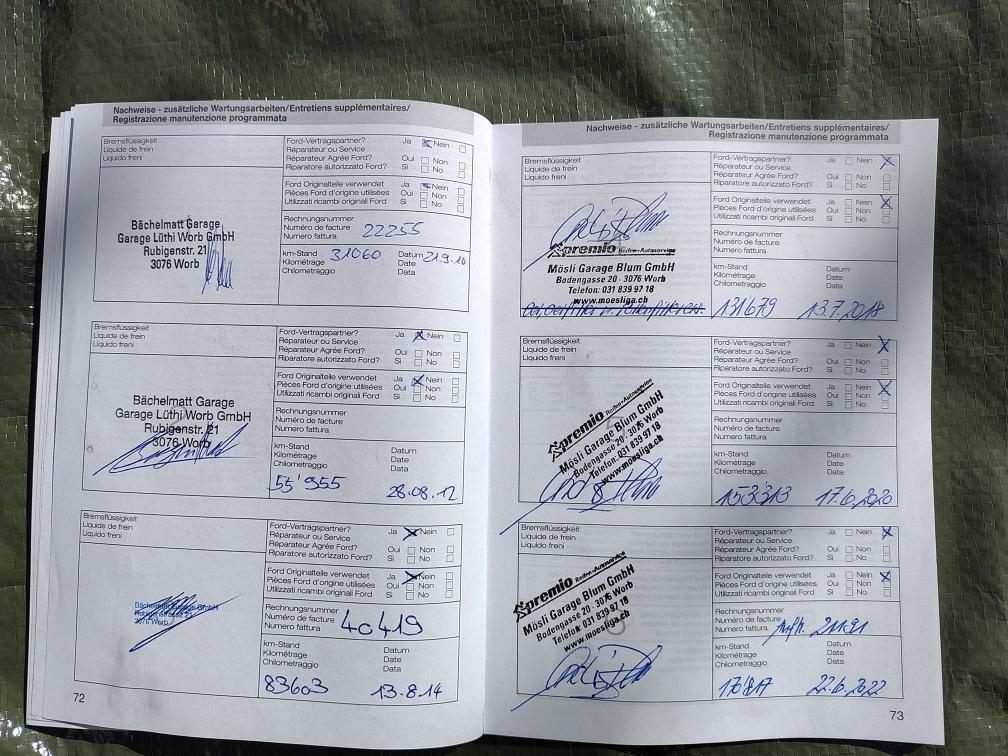 Nachweise - zusätzliche Wartungsarbeiten/Entretiens supplémentaires/
Registrazione manutenzione programmata
Bremsflüssigkeit
Liquide de frein
Liquido freni
Bächelmatt Garage
Garage Lüthi Worb GmbH
Rubigenstr. 21
3076 Worb
Ford-Vertragspartner? Ja Nein
Réparateur ou Service
Réparateur Agrée Ford? Oui Non
Riparatore autorizzato Ford? Si No
Ford Originalteile verwendet Ja Nein
Pièces Ford d'origine utilisées Oui Non
Utilizzati ricambi originali Ford Si No
Rechnungsnummer
Numéro de facture 22255
Numero fattura
km-Stand 31060 Datum 21.9.10
Kilométrage Date
Chilometraggio Data
Bremsflüssigkeit
Liquide de frein
Liquido freni
Bächelmatt Garage
Garage Lüthi Worb GmbH
Rubigenstr. 21
3076 Worb
Ford-Vertragspartner? Ja Nein
Réparateur ou Service
Réparateur Agrée Ford? Oui Non
Riparatore autorizzato Ford? Si No
Ford Originalteile verwendet Ja Nein
Pièces Ford d'origine utilisées Oui Non
Utilizzati ricambi originali Ford Si No
Rechnungsnummer
Numéro de facture
Numero fattura
km-Stand Datum
Kilométrage Date
Chilometraggio Data
55'955 28.08.12
Bremsflüssigkeit
Liquide de frein
Liquido freni
Bächelmatt Garage GmbH
3076 Worb
Ford-Vertragspartner? Ja Nein
Réparateur ou Service
Réparateur Agrée Ford? Oui Non
Riparatore autorizzato Ford? Si No
Ford Originalteile verwendet Ja Nein
Pièces Ford d'origine utilisées Oui Non
Utilizzati ricambi originali Ford Si No
Rechnungsnummer
Numéro de facture 40419
Numero fattura
km-Stand Datum
Kilométrage Date
Chilometraggio Data
83603 13.8.14
72
Nachweise - zusätzliche Wartungsarbeiten/Entretiens supplémentaires/
Registrazione manutenzione programmata
Bremsflüssigkeit
Liquide de frein
Liquido freni
premio Reifen+Autoservice
Mösli Garage Blum GmbH
Bodengasse 20 - 3076 Worb
Telefon: 031 839 97 18
www.moesliga.ch
Ford-Vertragspartner? Ja Nein
Réparateur ou Service
Réparateur Agrée Ford? Oui Non
Riparatore autorizzato Ford? Si No
Ford Originalteile verwendet Ja Nein
Pièces Ford d'origine utilisées Oui Non
Utilizzati ricambi originali Ford Si No
Rechnungsnummer
Numéro de facture
Numero fattura
km-Stand Datum
Kilométrage Date
Chilometraggio Data
131679 13.7.2018
Bremsflüssigkeit
Liquide de frein
Liquido freni
premio Reifen+Autoservice
Mösli Garage Blum GmbH
Bodengasse 20 - 3076 Worb
Telefon: 031 839 97 18
www.moesliga.ch
Ford-Vertragspartner? Ja Nein
Réparateur ou Service
Réparateur Agrée Ford? Oui Non
Riparatore autorizzato Ford? Si No
Ford Originalteile verwendet Ja Nein
Pièces Ford d'origine utilisées Oui Non
Utilizzati ricambi originali Ford Si No
Rechnungsnummer
Numéro de facture
Numero fattura
km-Stand Datum
Kilométrage Date
Chilometraggio Data
153'313 17.6.2020
Bremsflüssigkeit
Liquide de frein
Liquido freni
premio Reifen+Autoservice
Mösli Garage Blum GmbH
Bodengasse 20 - 3076 Worb
Telefon: 031 839 97 18
www.moesliga.ch
Ford-Vertragspartner? Ja Nein
Réparateur ou Service
Réparateur Agrée Ford? Oui Non
Riparatore autorizzato Ford? Si No
Ford Originalteile verwendet Ja Nein
Pièces Ford d'origine utilisées Oui Non
Utilizzati ricambi originali Ford Si No
Rechnungsnummer
Numéro de facture
Numero fattura Auftr. 21191
km-Stand Datum
Kilométrage Date
Chilometraggio Data
176'817 22.6.2022
73